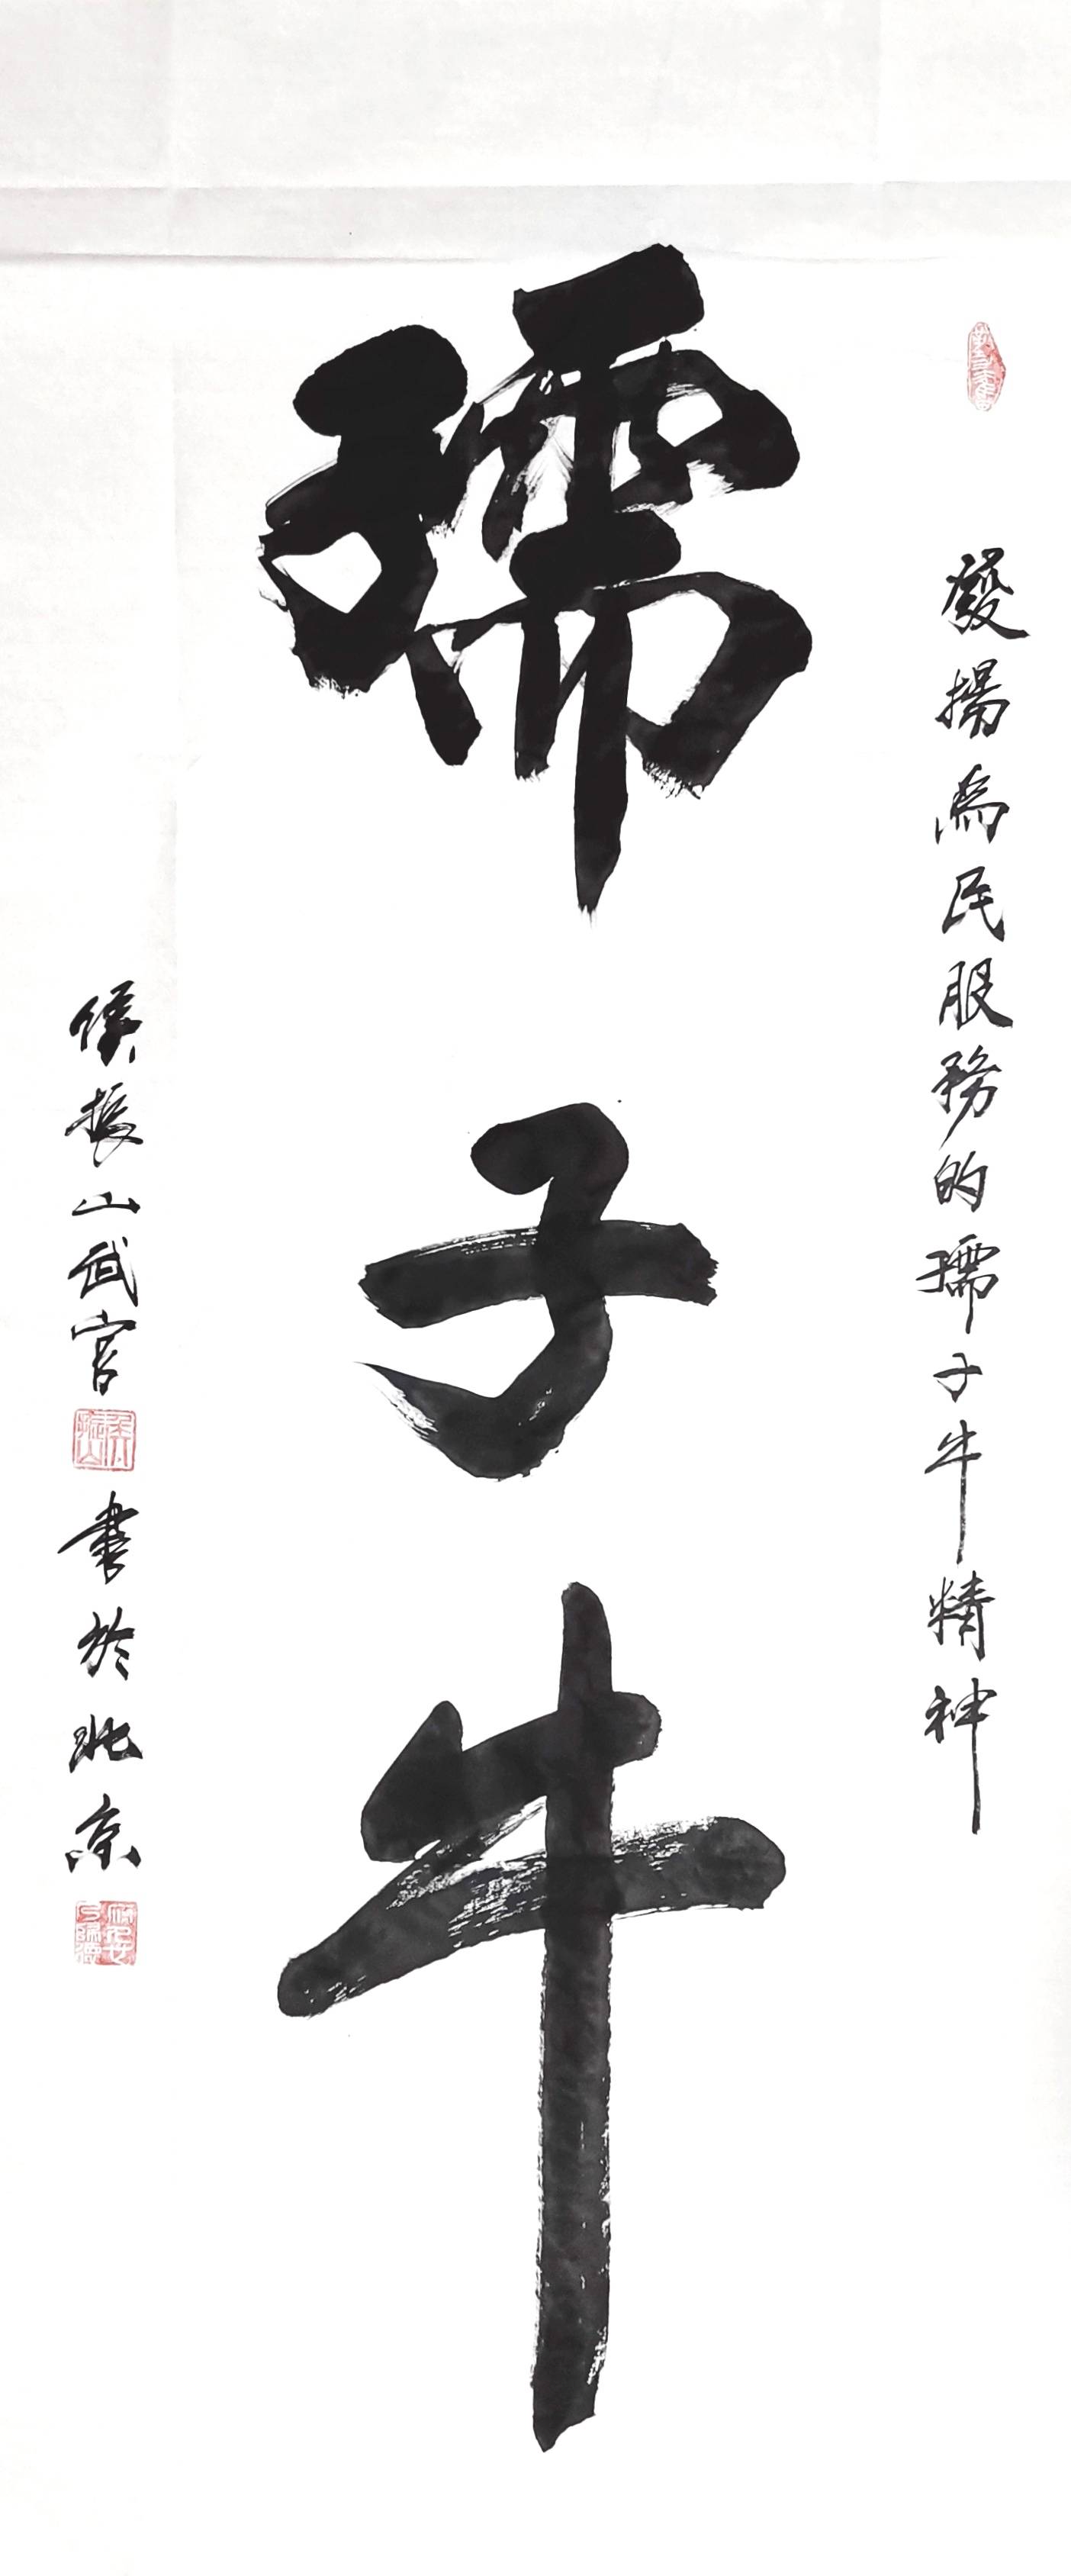 發揚為民服務的孺子牛精神
孺子牛
侯振山武官
書於北京